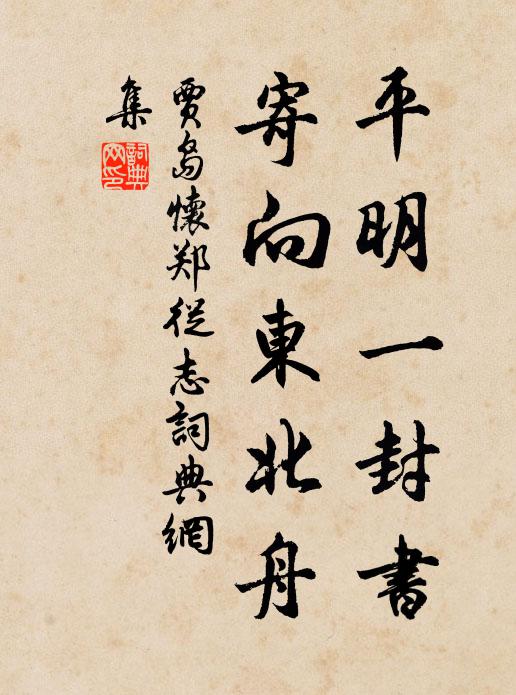 平明一封書
寄向東北舟
賈島懷郑從志詞典網
集
詞典
网印